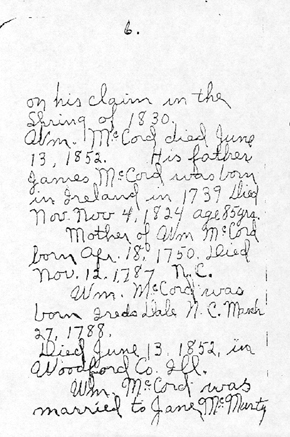 6.
on his claim in the
Spring of 1830.
Wm. McCord died June
13, 1852. His father
James McCord was born
in Ireland in 1739 Died
Nov. Nov 4, 1824 age 85 yrs.
Mother of Wm McCord
born Apr. 18, 1750. Died
Nov. 12. 1787 N.C.
Wm. McCord was
born Ireds Dale N.C. March
27, 1788.
Died June 13. 1852, in
Woodford Co. Ill.
Wm. McCord was
married to Jane McMurty